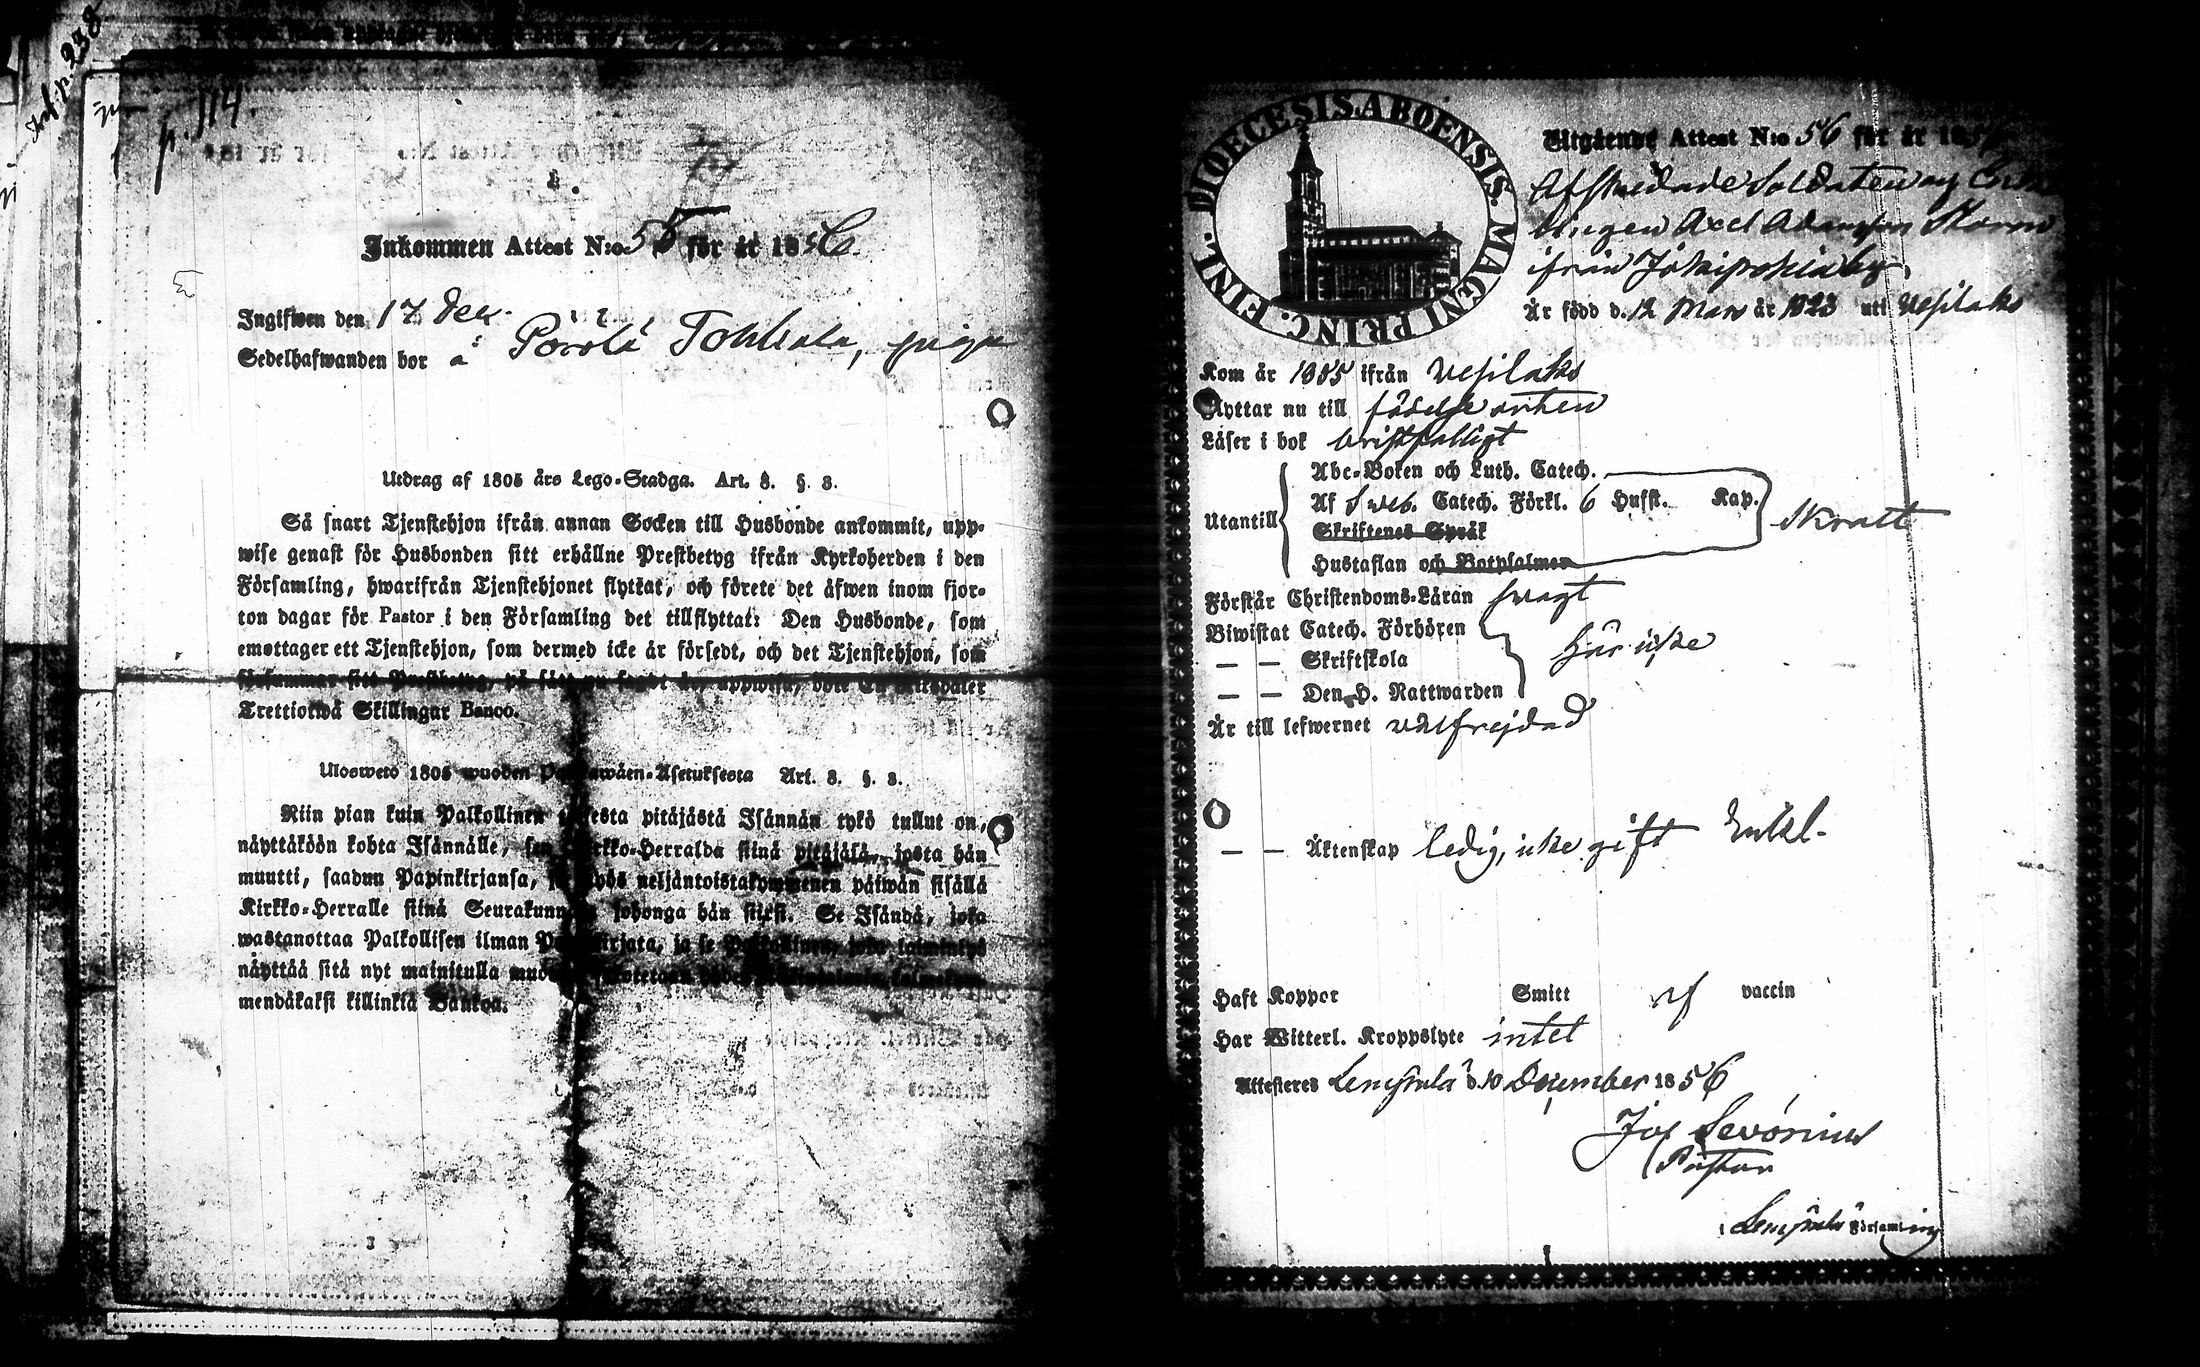 p. 238.
p. 114.
Inkommen Attest N:o 55 för år 1856.
Ingifwen den 17 Dec.
Sedelhafwanden bor å Porola Tohkala,
Utdrag af 1805 års Lego-Stadga. Art. 8. §. 3.
Så snart Tjenstehjon ifrån annan Socken till Husbonde ankommit, upp-
wise genast för Husbonden sitt erhållne Prestbetyg ifrån Kyrkoherden i den
Församling, hwarifrån Tjenstehjonet flyttat, och förete det äfwen inom fjor-
ton dagar för Pastor i den Församling det tillflyttat: Den Husbonde, som
emottager ett Tjenstehjon, som dermed icke är försedt, och det Tjenstehjon, som
sitt Prestbetyg, på uppwisa,
Trettiotwå Skillingar Banco.
Uloswetö 1805 wuoden Asetuksesta Art. 8. §. 3.
Niin pian kuin Palkollinen pitäjästä Isännän tykö tullut on,
näyttäköön kohta Isännälle, sen Kirkko-Herralda siinä pitäjäsä, josta hän
muutti, saadun Papinkirjansa, neljäntoistakymmenen päiwän sisällä
Kirkko-Herralle siinä Seurakunnasa johonga hän siirsi. Se Isändä, joka
wastanottaa Palkollisen ilman Papinkirjata, ja se Palkollinen, joka
näyttää sitä nyt mainitulla
mendäkaksi killinkiä Bankoa.
DIOECESIS. ABOENSIS. MAGNI PRINC. FINL.
Utgående Attest N:o 56 för år 1856
Afskedade Soldaten
Axel Adamsson Storm
ifrån Jokipohja by,
Är född d. 12 Mars år 1823 uti Vesilaks
Kom år 1855 ifrån Vesilaks
Flyttar nu till födelse orten
Läser i bok bristfälligt
Utantill Abc-Boken och Luth. Catech.
Af Sveb. Catech. Förkl. 6 Hufst. Kap.
Skriftenes Språk
Hustaflan och Botpsalmer
Förstår Christendoms-Läran svagt
Biwistat Catech. Förhören
— — Skriftskola här icke
— — Den H. Nattwarden
Är till lefwernet välfrejdad
— — Äktenskap ledig, icke gift Enkl.
Haft Koppor Smitt af vaccin
Har Witterl. Kroppslyte intet
Attesteras Lempälä d. 10 December 1856
Jos Sevonius
Pastor
i Lempälä Församling